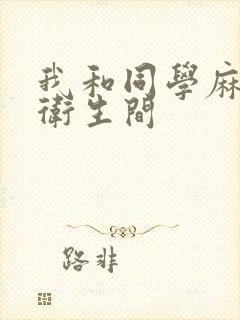 我和同學麻
衛生間
路非